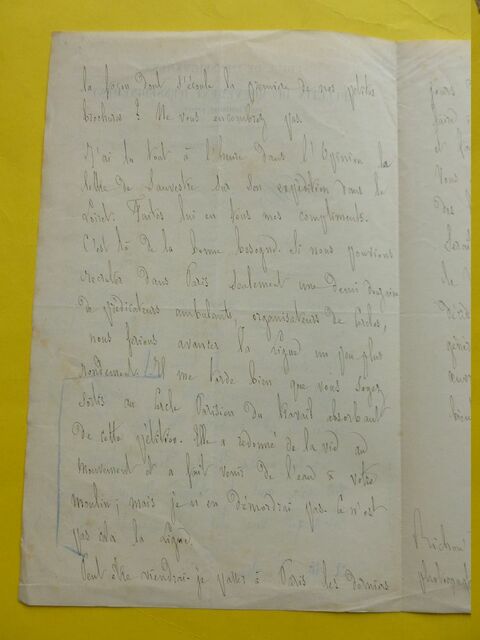 la façon dont s'écoule la première de nos petites
brochures ? Ne vous encombrez pas.
J'ai lu tout à l'heure dans l'Opinion la
lettre de Sauvestre sur son expédition dans le
Loiret. Faites lui en tous mes compliments.
C'est là de la bonne besogne. Si nous pouvions
recruter dans Paris seulement une demi douzaine
de prédicateurs ambulants, organisateurs de Cercles,
nous ferions avancer la Ligue un peu plus
rondement. Il me tarde bien que vous soyez
sortis au Cercle Parisien du travail absorbant
de cette pétition. Elle a redonné de la vie au
mouvement et a fait venir de l'eau à votre
moulin ; mais je n'en démordrai pas. Ce n'est
pas là la Ligue.
Peut être viendrai-je passer à Paris les derniers
jours
faire
et
vous
des
le
bien